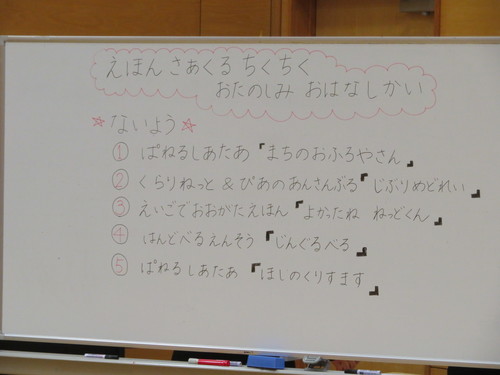 えほん さぁくる ちくちく
おたのしみ おはなしかい
☆ないよう☆
① ぱねるしあたあ『まちのおふろやさん』
② くらりねっと & ぴあのあんさんぶる『じぶりめどれい』
③ えいごでおおがたえほん『よかったね ねっどくん』
④ はんどべるえんそう『じんぐるべる』
⑤ ぱねるしあたあ『ほしのくりすます』